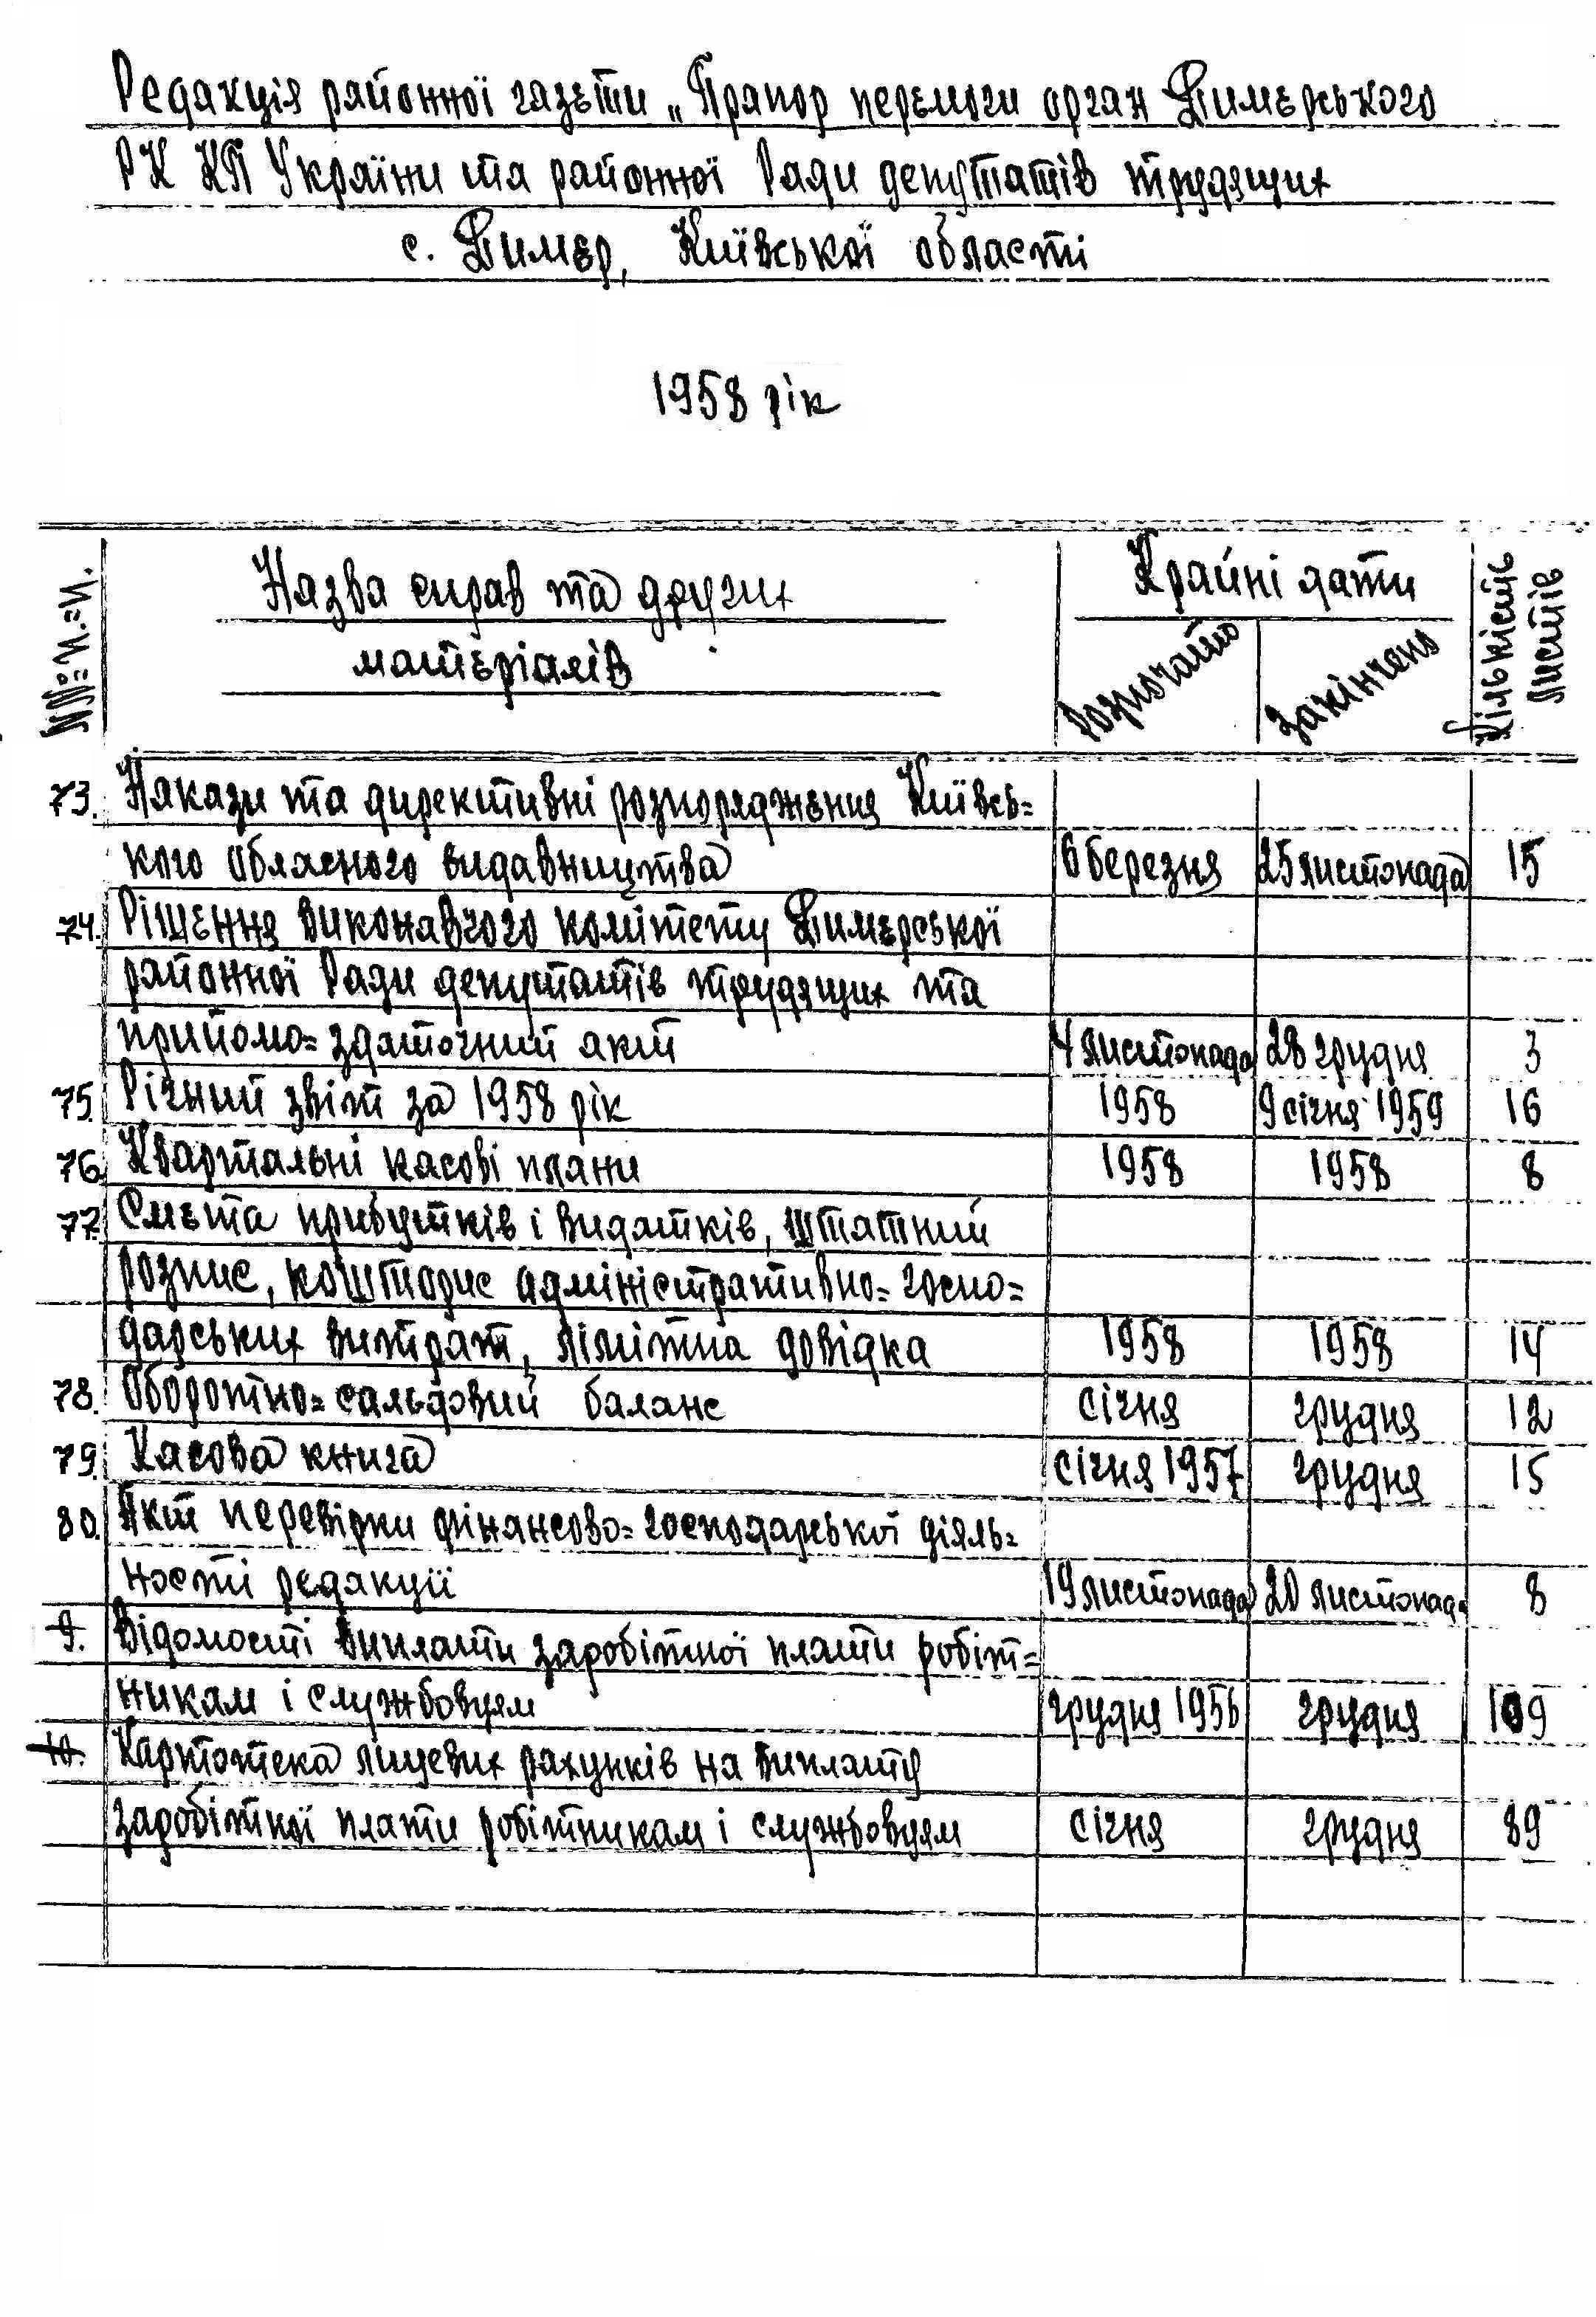 Редакція районної газети „Прапор перемоги орган Димерського
РК КП України та районної Ради депутатів трудящих
с. Димер, Київської області
1958 рік
№№ п.=п.
Назва справ та других
матеріалів
Крайні дати
Розпочато
Закінчено
Кількість
листів
73. Накази та директивні розпорядження Київсь=
кого обласного видавництва 6 березня 25 листопада 15
74. Рішення виконавчого комітету Димерської
районної Ради депутатів трудящих та
прийомо=здаточний акт 4 листопада 28 грудня 3
75. Річний звіт за 1958 рік 1958 9 січня 1959 16
76. Квартальні касові плани 1958 1958 8
77. Смета прибутків і видатків, штатний
розпис, кошторис адміністративно=госпо=
дарських витрат, лімітна довідка 1958 1958 14
78. Оборотно=сальдовий баланс січня грудня 12
79. Касова книга січня 1957 грудня 15
80. Акт перевірки фінансово=господарської діяль=
ності редакції 19 листопада 20 листопада 8
9. Відомості виплати заробітної плати робіт=
никам і службовцям грудня 1956 грудня 109
10. Картотека лицевих рахунків на виплату
заробітної плати робітникам і службовцям січня грудня 89